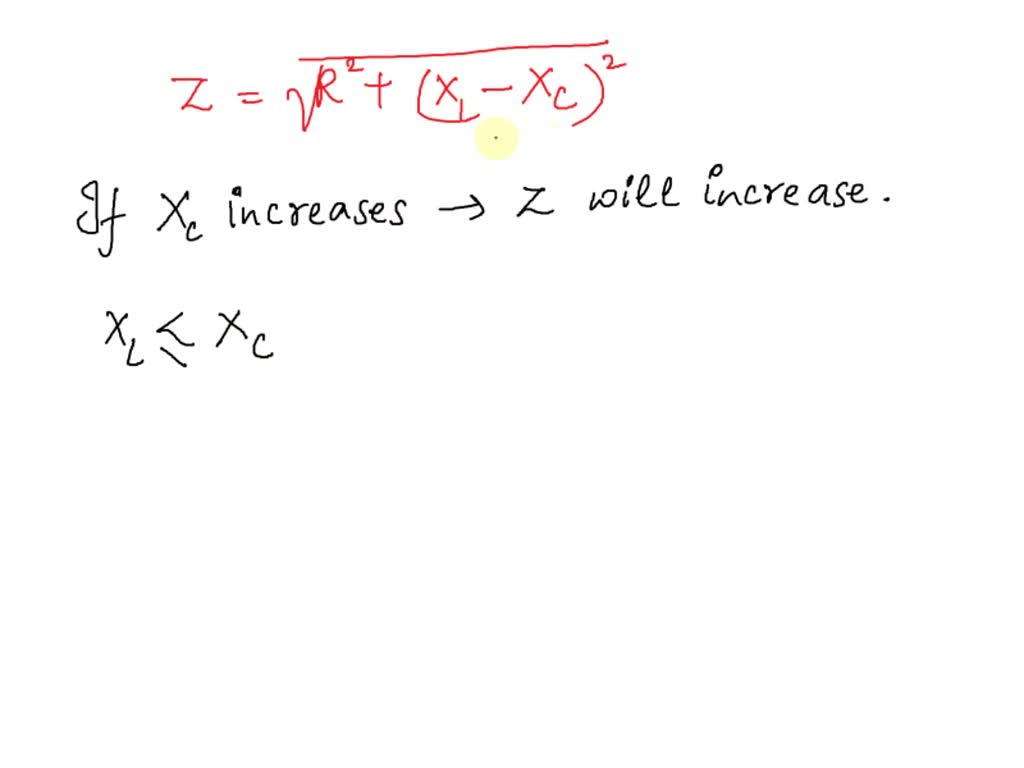 Z = √R² + (X_L - X_C)²
If X_C increases → Z will increase.
X_L ≤ X_C